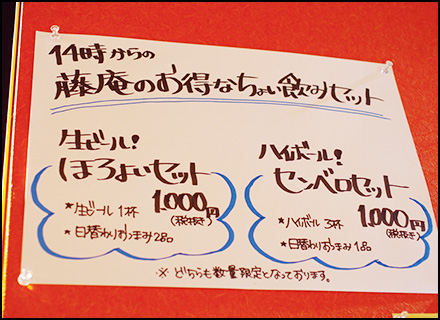 14時からの
藤庵のお得なちょい飲みセット
生ビール!
ほろよいセット
1,000円
(税抜き)
★生ビール 1杯
★日替わりおつまみ2品
ハイボール!
センベロセット
1,000円
(税抜き)
★ハイボール 3杯
★日替わりおつまみ1品
※どちらも数量限定となっております。